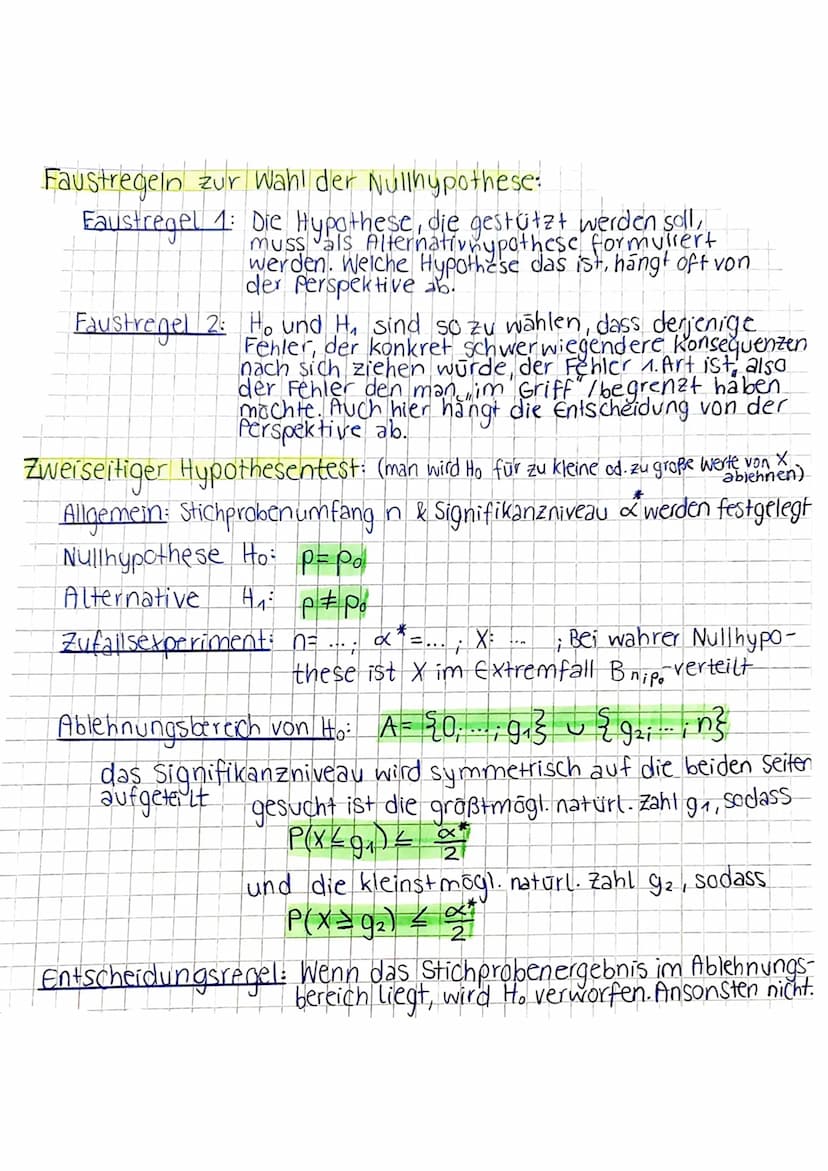 Faustregeln zur Wahl der Nullhypothese:
Faustregel 1: Die Hypothese, die gestützt werden soll,
muss als Alternativhypothese formuliert
werden. Welche Hypothese das ist, hängt oft von
der Perspektive ab.
Faustregel 2: H₀ und H₁ sind so zu wählen, dass derjenige
Fehler, der konkret schwerwiegendere Konsequenzen
nach sich ziehen würde, der Fehler 1. Art ist, also
der Fehler den man „im Griff“ / begrenzt haben
möchte. Auch hier hängt die Entscheidung von der
Perspektive ab.
Zweiseitiger Hypothesentest: (man wird H₀ für zu kleine od. zu große Werte von X
ablehnen)
Allgemein: Stichprobenumfang n & Signifikanzniveau α* werden festgelegt
Nullhypothese H₀: p = p₀
Alternative H₁: p ≠ p₀
Zufallsexperiment: n= ...; α*=...; X: ... ; Bei wahrer Nullhypo-
these ist X im Extremfall Bₙ;ₚ₀-verteilt
Ablehnungsbereich von H₀: A= {0;...;g₁} ∪ {g₂;...;n}
das Signifikanzniveau wird symmetrisch auf die beiden Seiten
aufgeteilt
gesucht ist die größtmögl. natürl. Zahl g₁, sodass
P(X ≤ g₁) ≤ α*/2
und die kleinstmögl. natürl. Zahl g₂, sodass
P(X ≥ g₂) ≤ α*/2
Entscheidungsregel: Wenn das Stichprobenergebnis im Ablehnungs-
bereich liegt, wird H₀ verworfen. Ansonsten nicht.